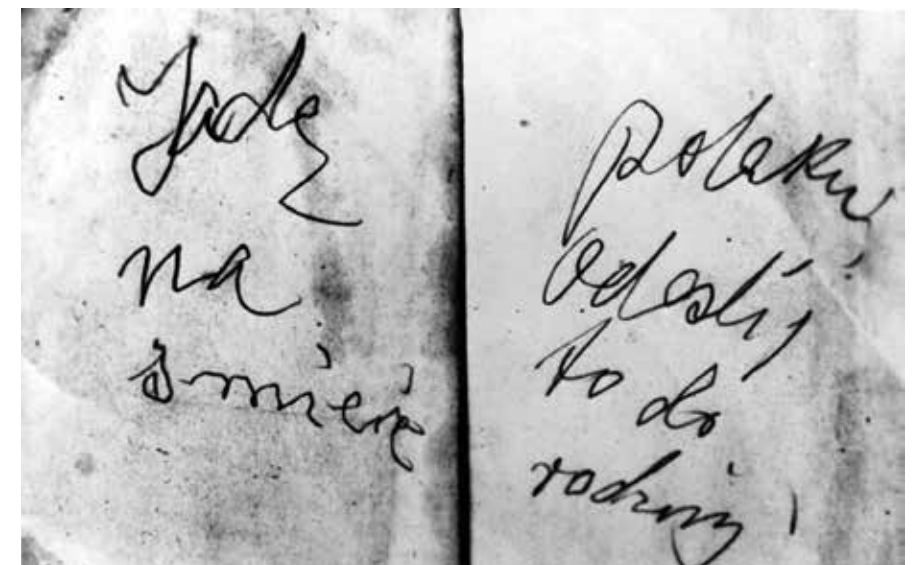 Jadę
na
śmierć
Polaku
odeślij
to do
rodziny!